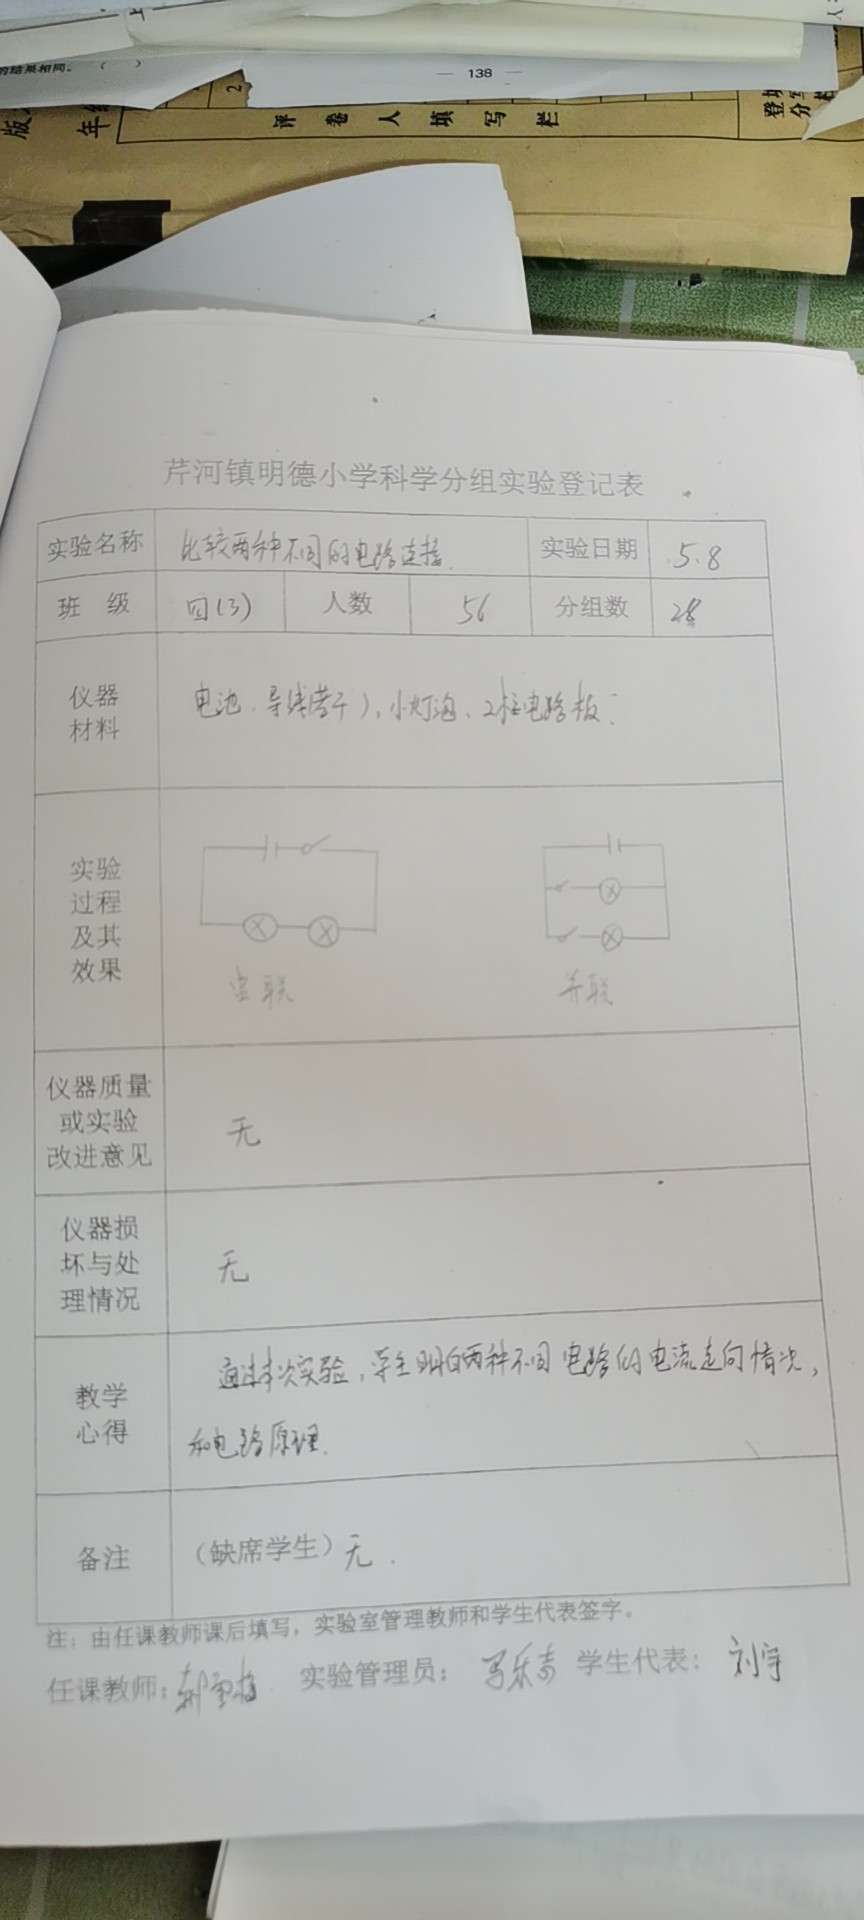 的结果和同。 （ ）
— 138 —
年
评卷人填写栏
登
分
芹河镇明德小学科学分组实验登记表
实验名称 比较两种不同的电路连接. 实验日期 5.8
班 级 四(3) 人数 56 分组数 28
仪器
材料
电池、导线(若干)、小灯泡、2柱电路板.
实验
过程
及其
效果
串联 并联
仪器质量
或实验
改进意见
无
仪器损
坏与处
理情况
无
教学
心得
通过本次实验，学生明白两种不同电路的电流走向情况，
和电路原理.
备注 （缺席学生）无.
注：由任课教师课后填写，实验室管理教师和学生代表签字。
任课教师： 实验管理员： 学生代表：刘宇